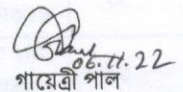 06.11.22
গায়েত্রী পাল